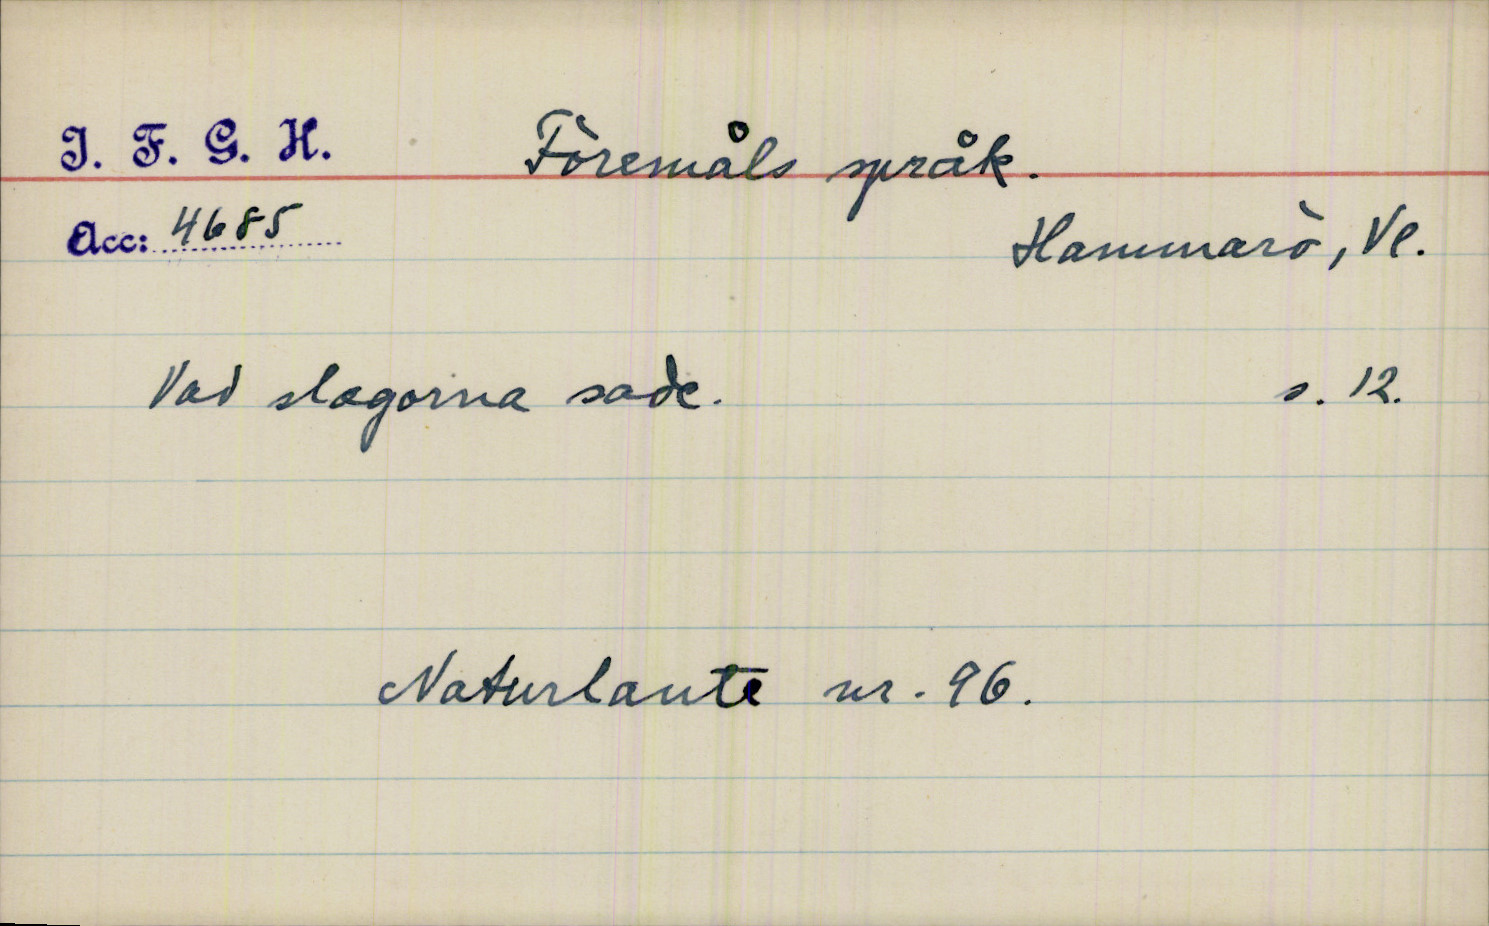 I. F. G. H. Föremåls språk.
Acc: 4685 Hammarö, Vl.
Vad slagorna sade. s. 12.
Naturlaute nr. 96.